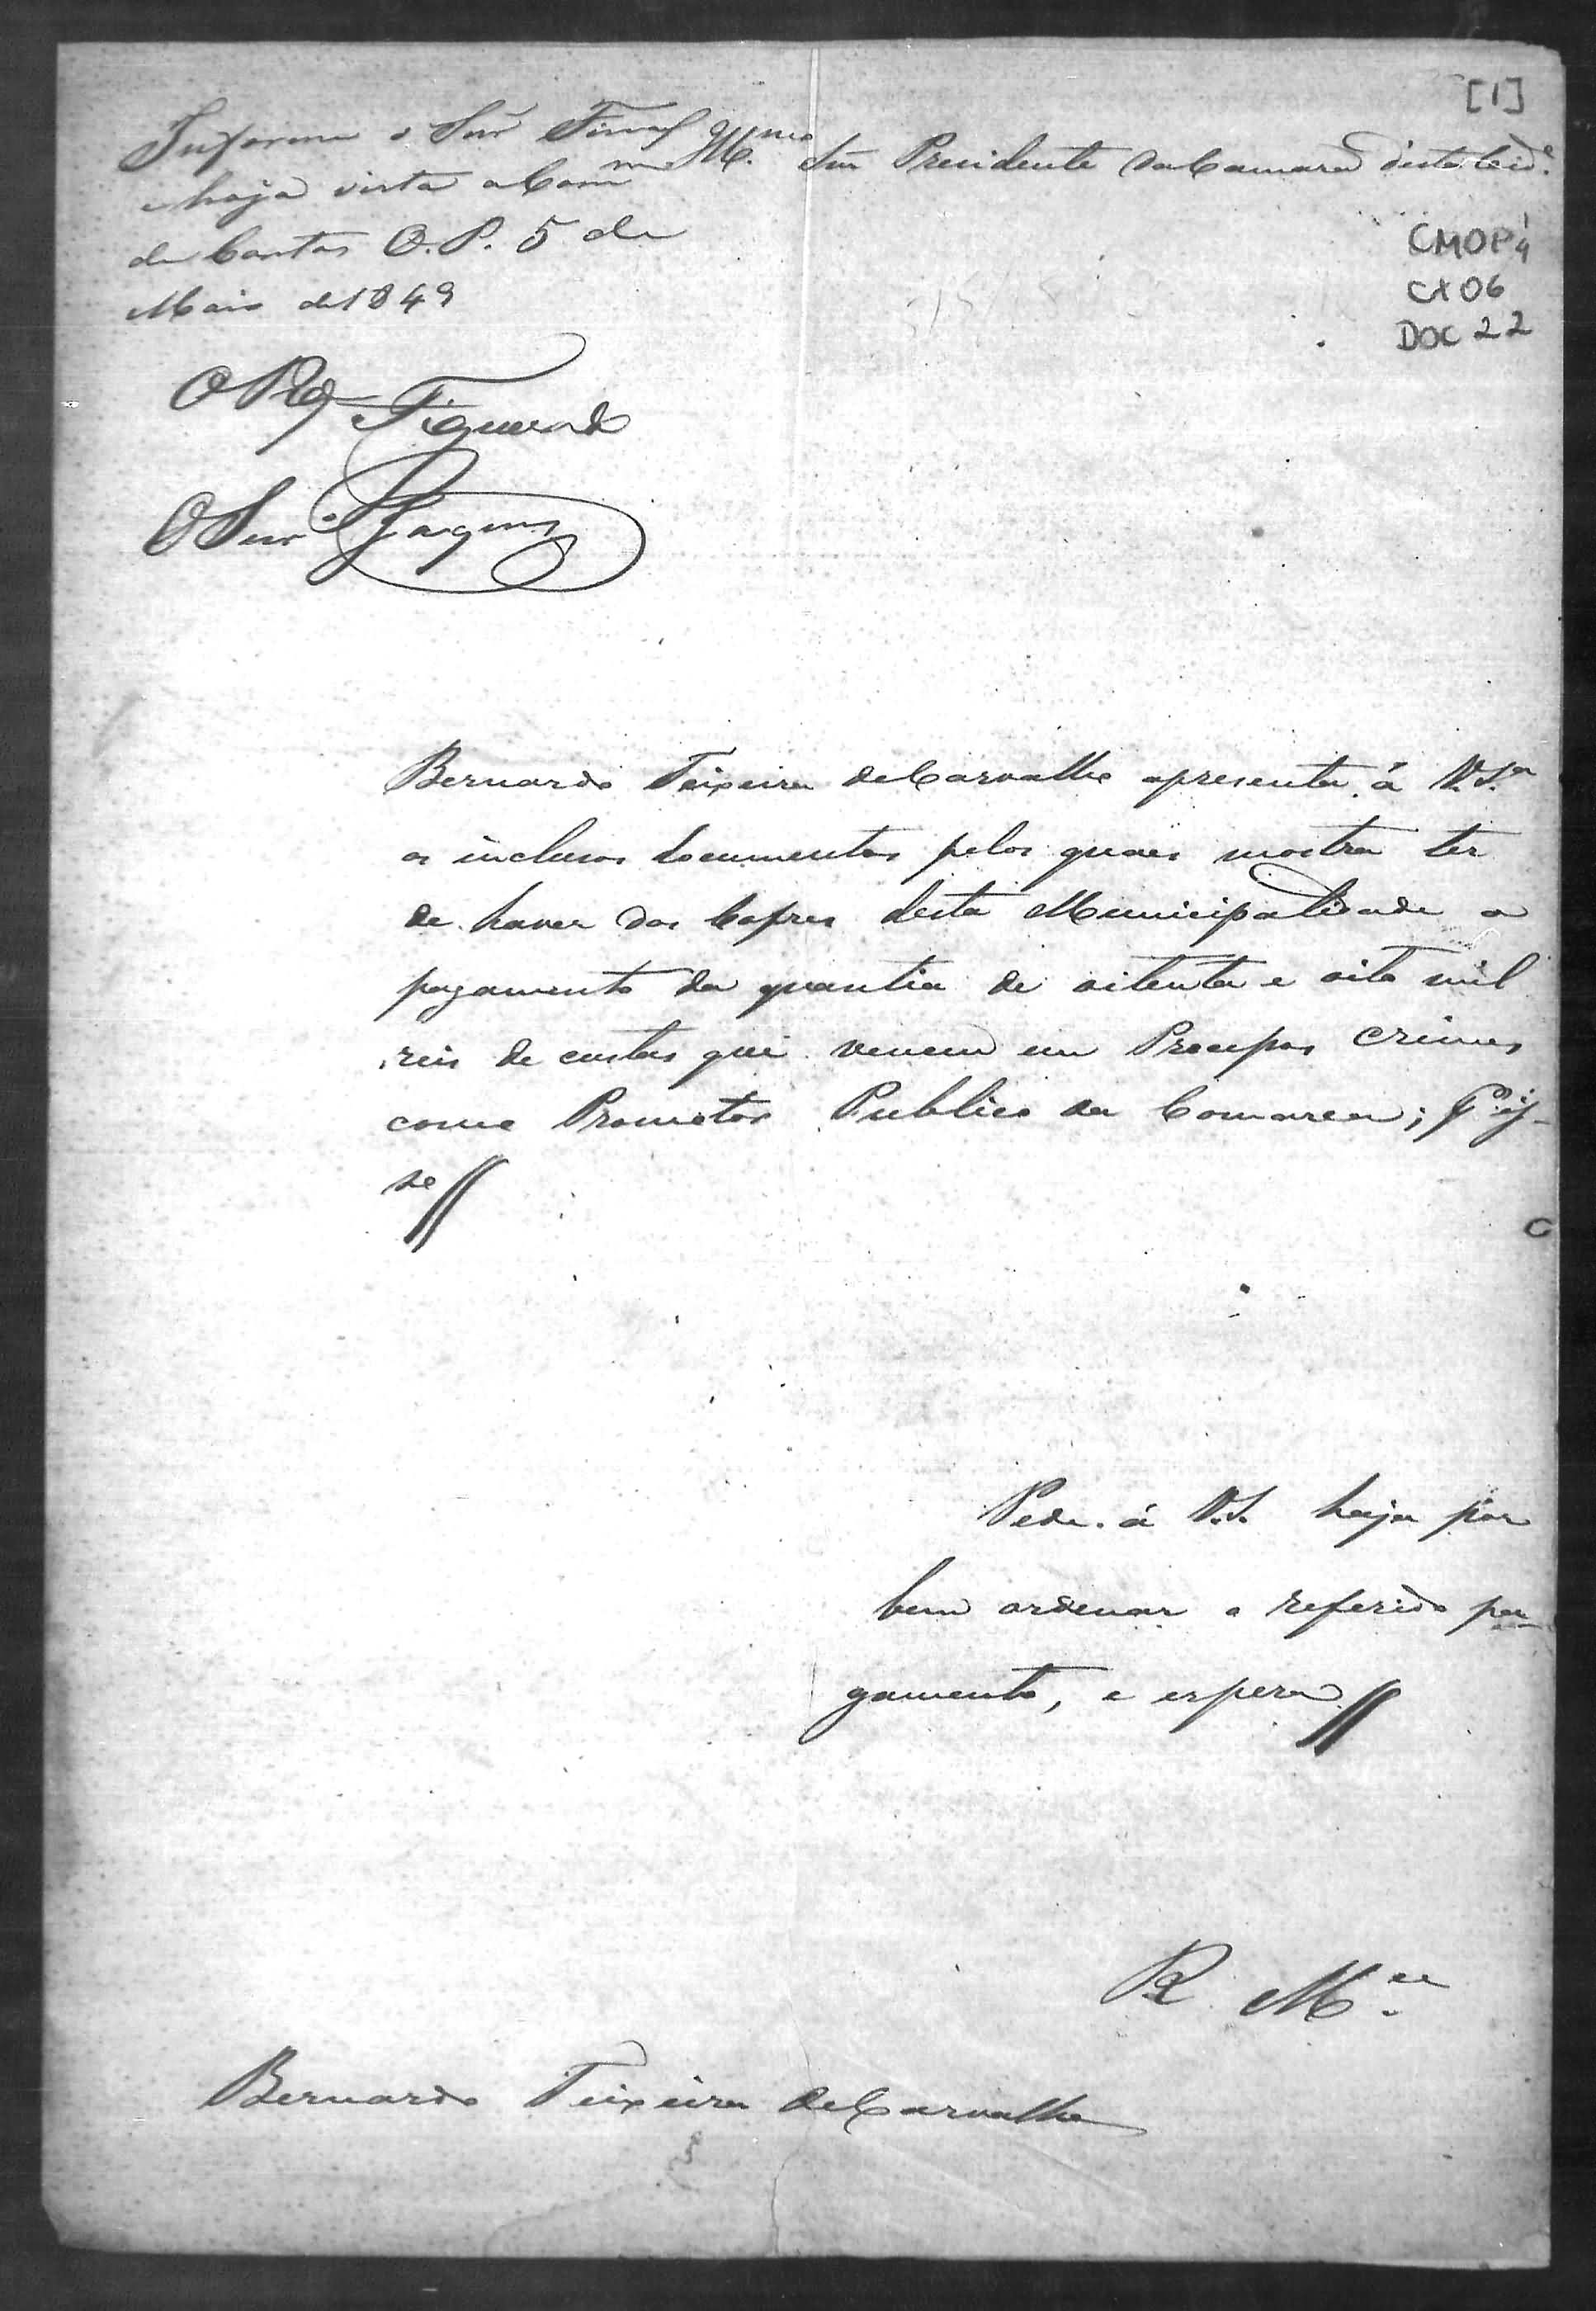 [1]
Informe o Snr Fiscal
e haja vista a Comm
de Contas O. P. 5 de
Maio de 1849
O P
Figueredo
O Secr.o
Illmo Snr Presidente da Camara desta Cid.e
CMOP
CX 06
DOC 22
Bernardo Teixeira de Carvalho apresenta á V.S.a
os inclusos documentos pelos quaes mostra ter
de haver dos Cofres desta Municipalidade o
pagamento da quantia de oitenta e oito mil
reis de custas que venceu em Processos crimes
como Promotor Publico da Comarca;
se
Pede á V.S. haja por
bem ordenar o referido pa-
gamento, e espera
R. M.ce
Bernardo Teixeira de Carvalho